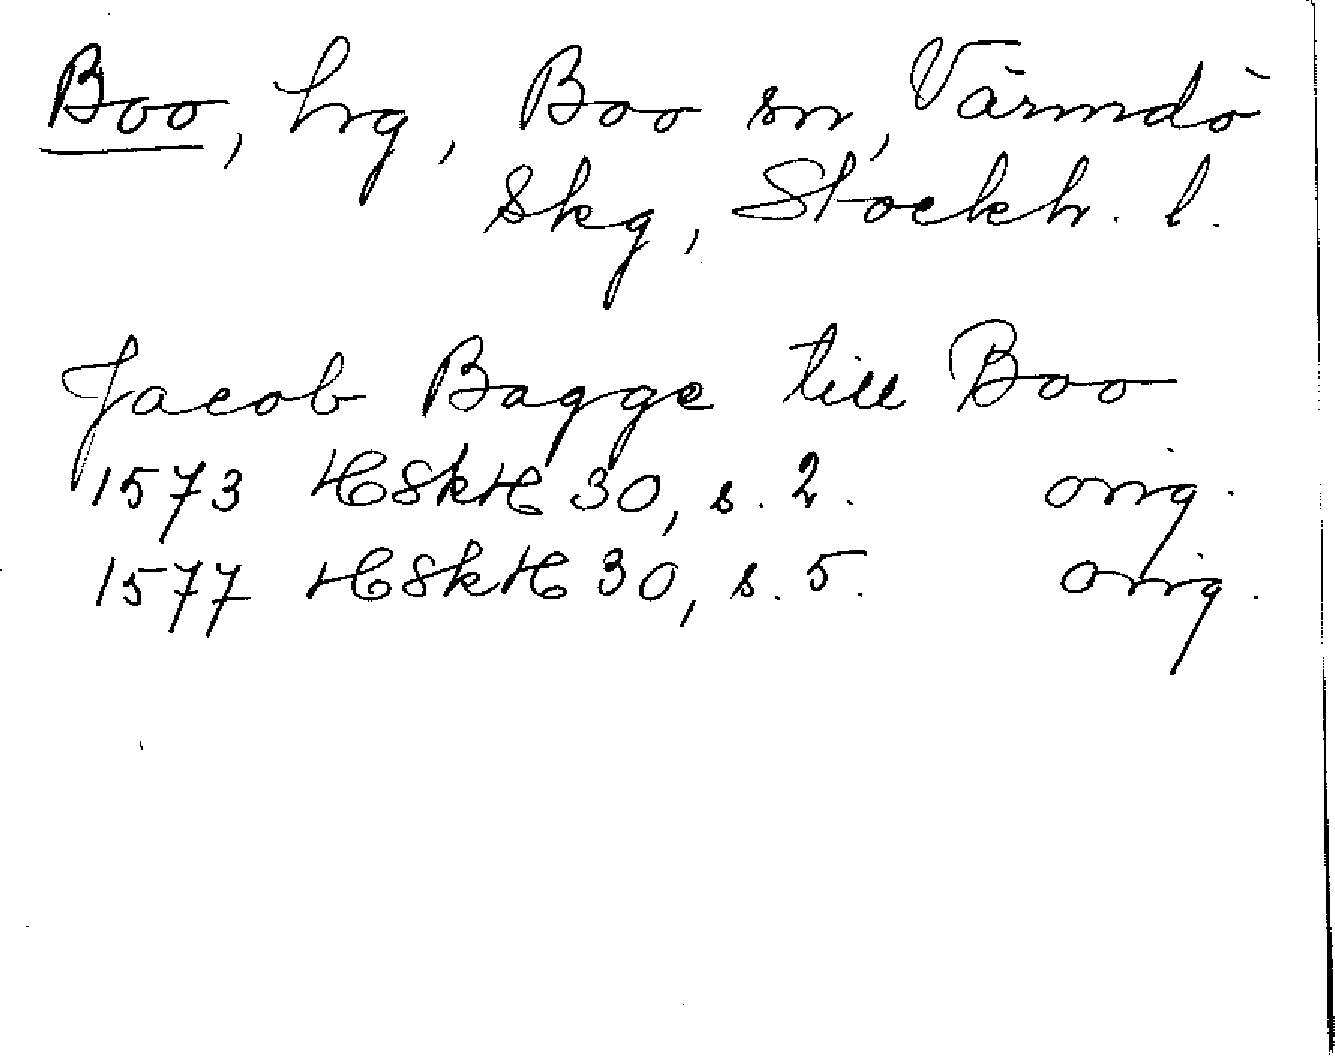 Boo, hrg, Boo sn, Värmdö
Skg, Stockh. l.
Jacob Bagge till Boo
1573 HSkH 30, s. 2. orig.
1577 HSkH 30, s. 5. orig.